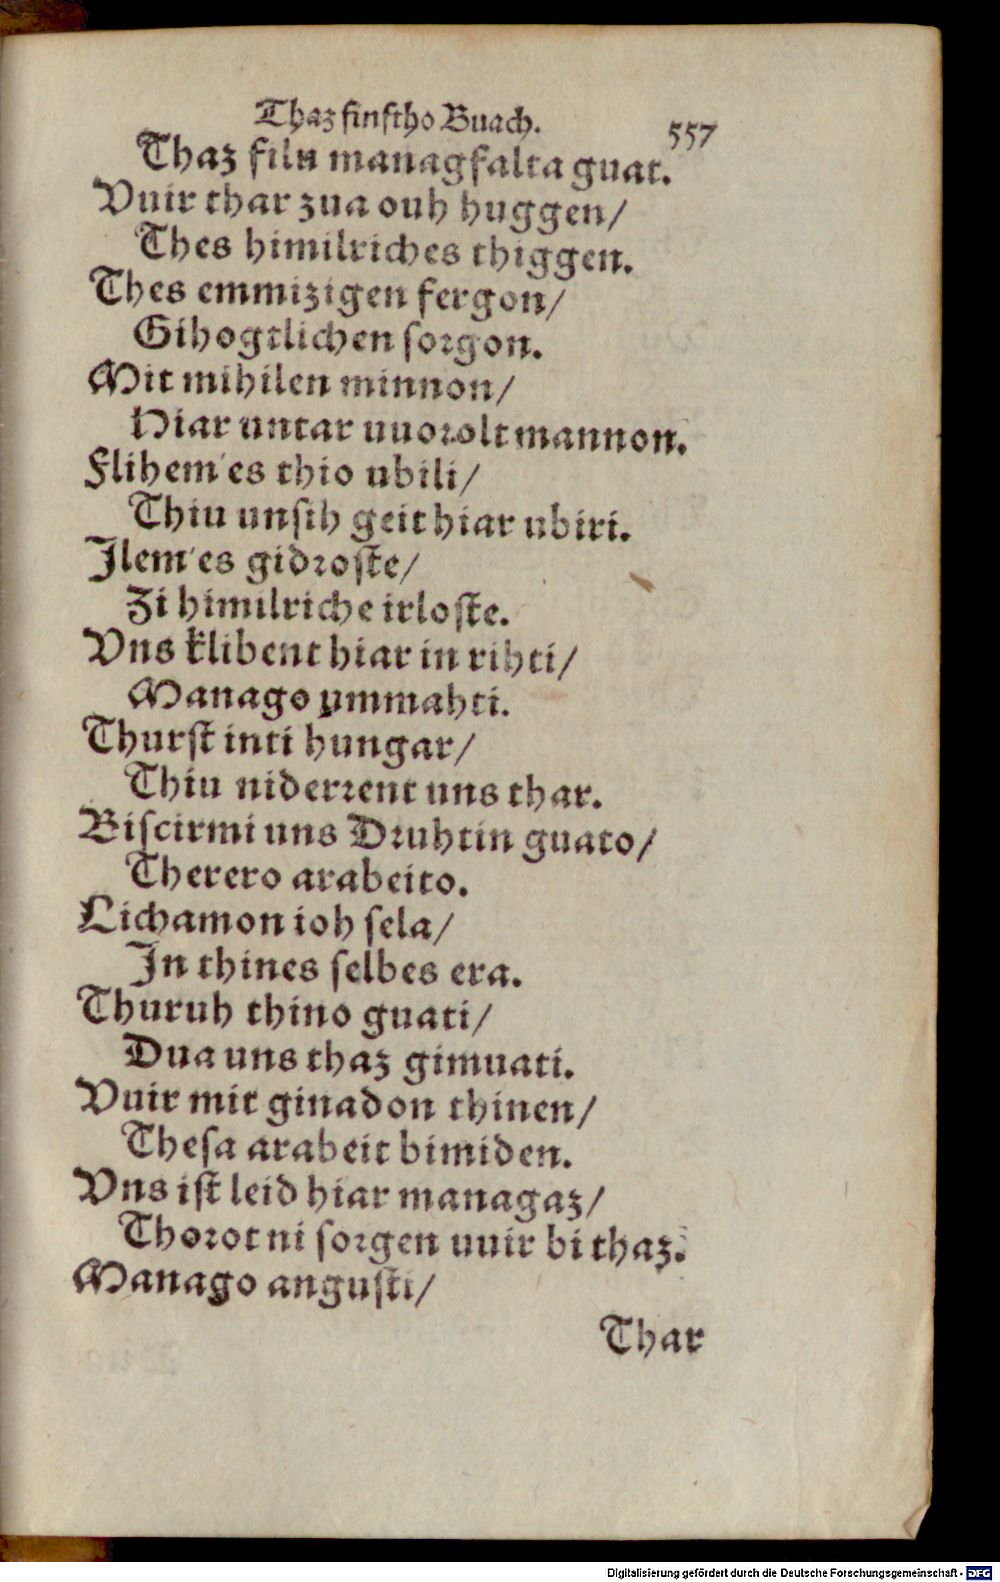 Thaz finftho Buach.
557
Thaz filu managfalta guat.
Vuir thar zua ouh huggen/
Thes himilriches thiggen.
Thes emmizigen fergon/
Gihogtlichen ſorgon.
Mit mihilen minnon/
Hiar untar uuorolt mannon.
Flihem'es thio ubili/
Thiu unſih geit hiar ubiri.
Ilem'es gidroſte/
Zi himilriche irloſte.
Vns klibent hiar in rihti/
Manago ymmahti.
Thurſt inti hungar/
Thiu niderrent uns thar.
Biſcirmi uns Druhtin guato/
Therero arabeito.
Lichamon ioh ſela/
In thines ſelbes era.
Thuruh thino guati/
Dua uns thaz gimuati.
Vuir mit ginadon thinen/
Theſa arabeit bimiden.
Vns iſt leid hiar managaz/
Thorot ni ſorgen uuir bi thaz.
Manago anguſti/
Thar
Digitalisierung gefördert durch die Deutsche Forschungsgemeinschaft - DFG